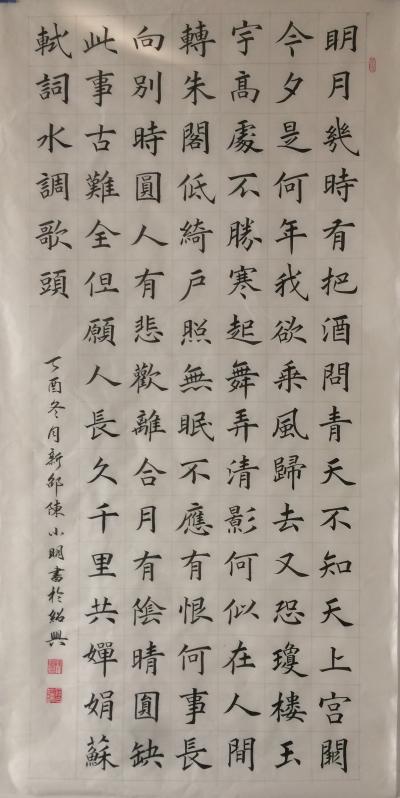 明月幾時有把酒問青天不知天上宮闕
今夕是何年我欲乘風歸去又恐瓊楼玉
宇髙處不勝寒起舞弄清影何似在人間
轉朱閣低綺戶照無眠不應有恨何事長
向别時圓人有悲歡離合月有陰晴圓缺
此事古難全但願人長久千里共嬋娟蘇
軾詞水調歌頭
丁酉冬月新邵陳小明書於紹興